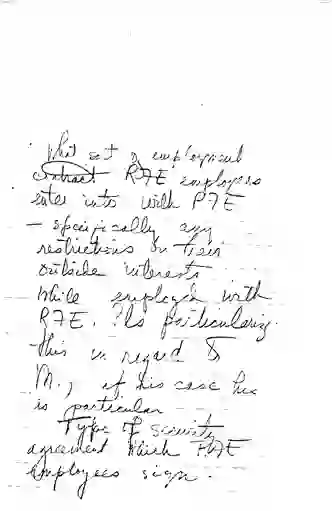 What sort of employment
contract RFE employees
enter into with RFE
— specifically any
restrictions on their
outside interests
while employed with
RFE. Pls particularize
this in regard to
M., if his case
is particular
Type of security
agreement which RFE
employees sign.